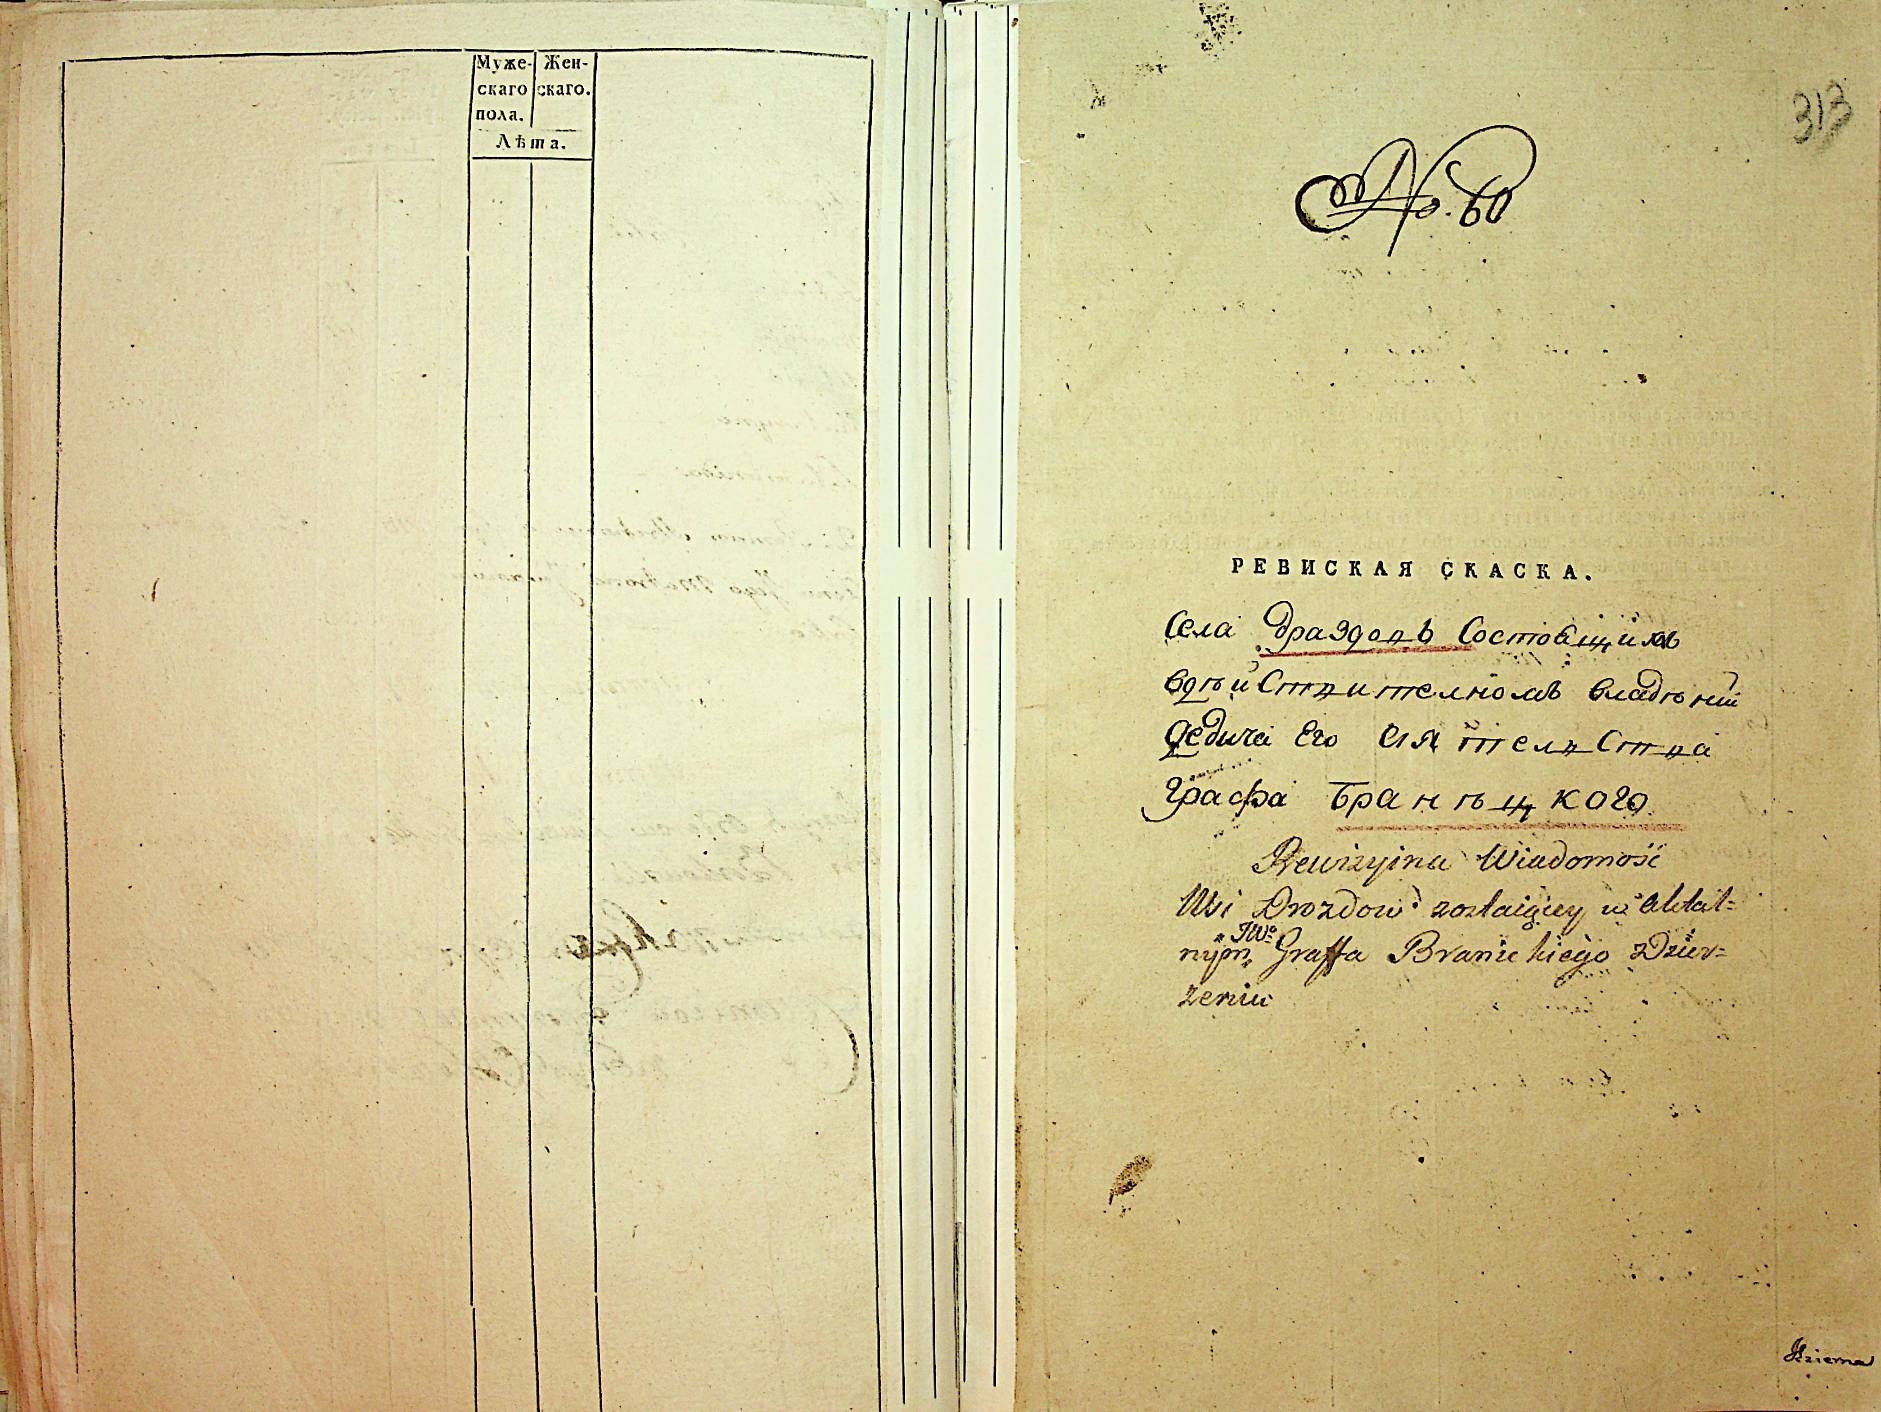 Муже-
скаго
пола.
Жен-
скаго.
Лѣта.
313
No. 60
РЕВИСКАЯ СКАСКА.
Села Драздовъ Состоящимъ
вдѣйствителномъ владѣнии
Дедича Его Сиятелства
Графа Бранѣцкого
Rewizyina Wiadomość
Wsi Drozdow zostaiącey w Aktal=
nym JWo Graffa Branickiego Dzier=
żeniu